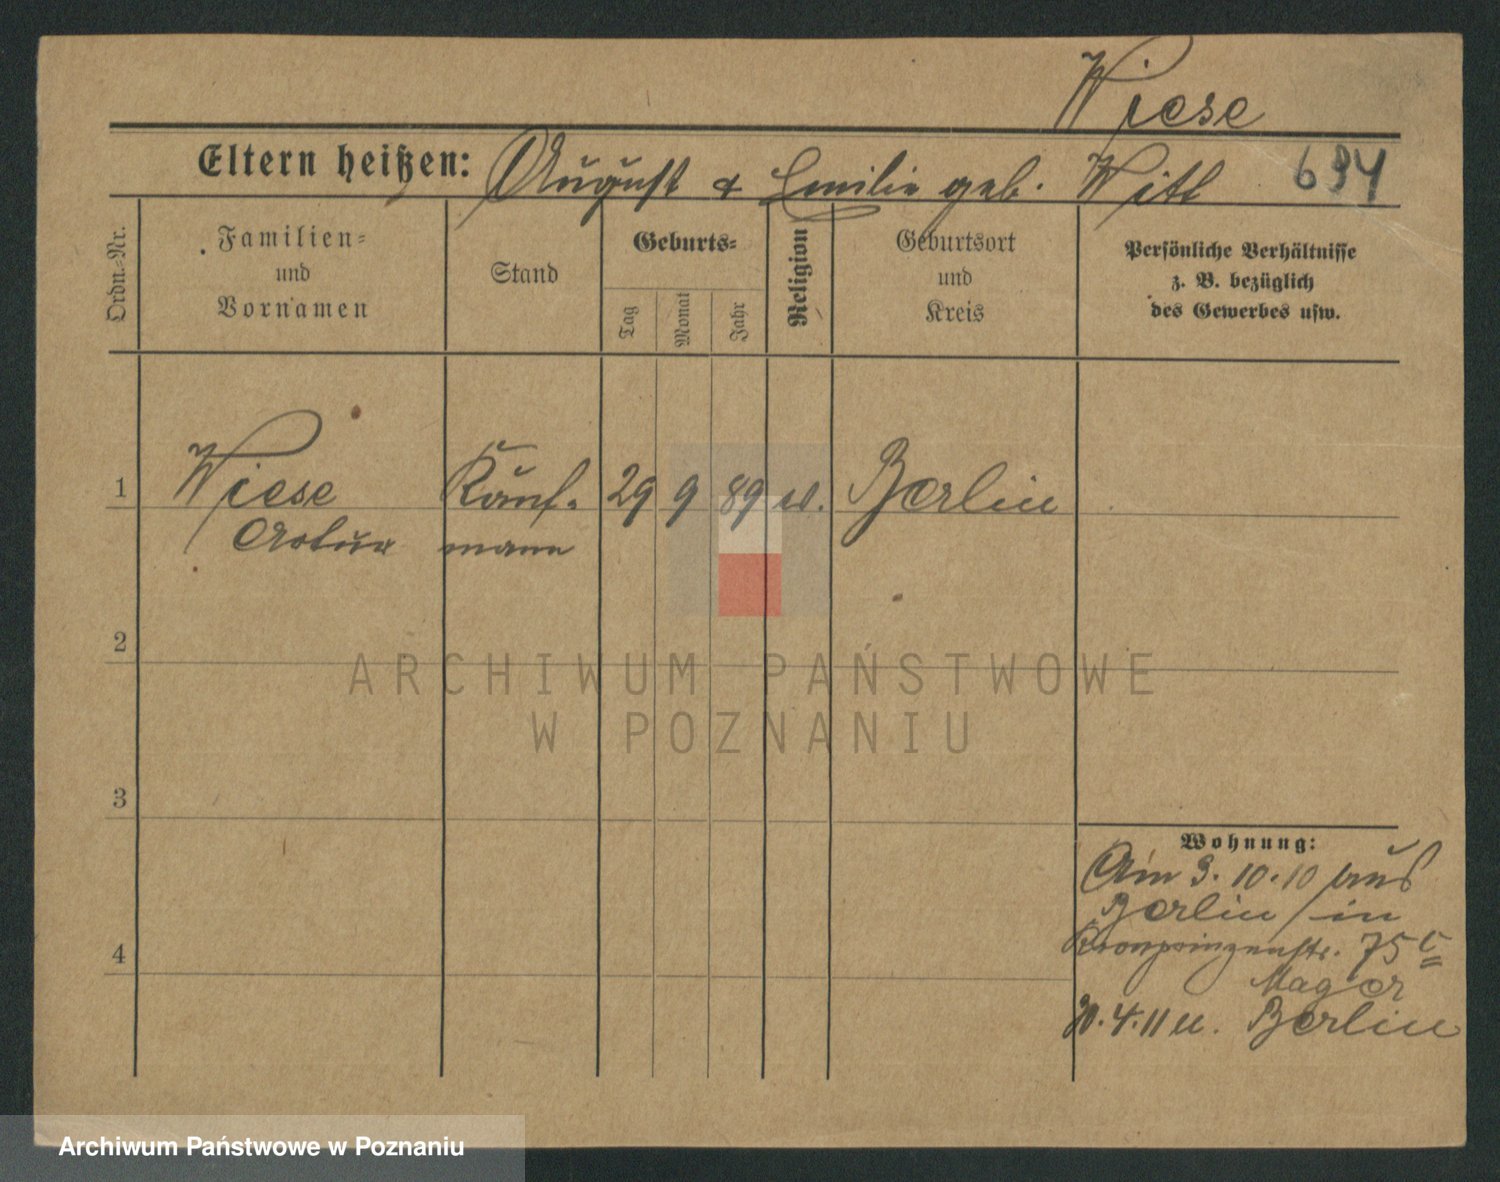 Wiese
Eltern heißen: August & Emilie geb. Witt 694
Ordn.=Nr.
Familien=
und
Vornamen
Stand
Geburts=
Tag
Monat
Jahr
Religion
Geburtsort
und
Kreis
Persönliche Verhältnisse
z. B. bezüglich
des Gewerbes usw.
1 Wiese Kauf= 29 9 89 ev. Berlin
Artur mann
2
3
4
Wohnung:
Am 3. 10. 10 aus
Berlin in
Kronprinzenstr. 75
Mager
4. 11 n. Berlin
ARCHIWUM PAŃSTWOWE
W POZNANIU
Archiwum Państwowe w Poznaniu